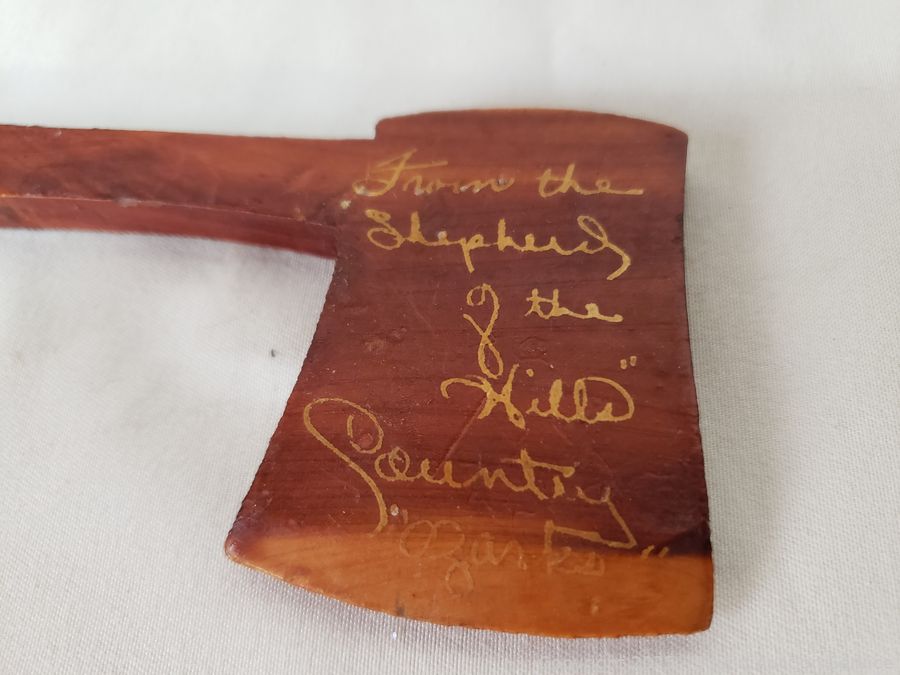 From the
Shepherd
of the
Hills"
Country
"Ozarks"